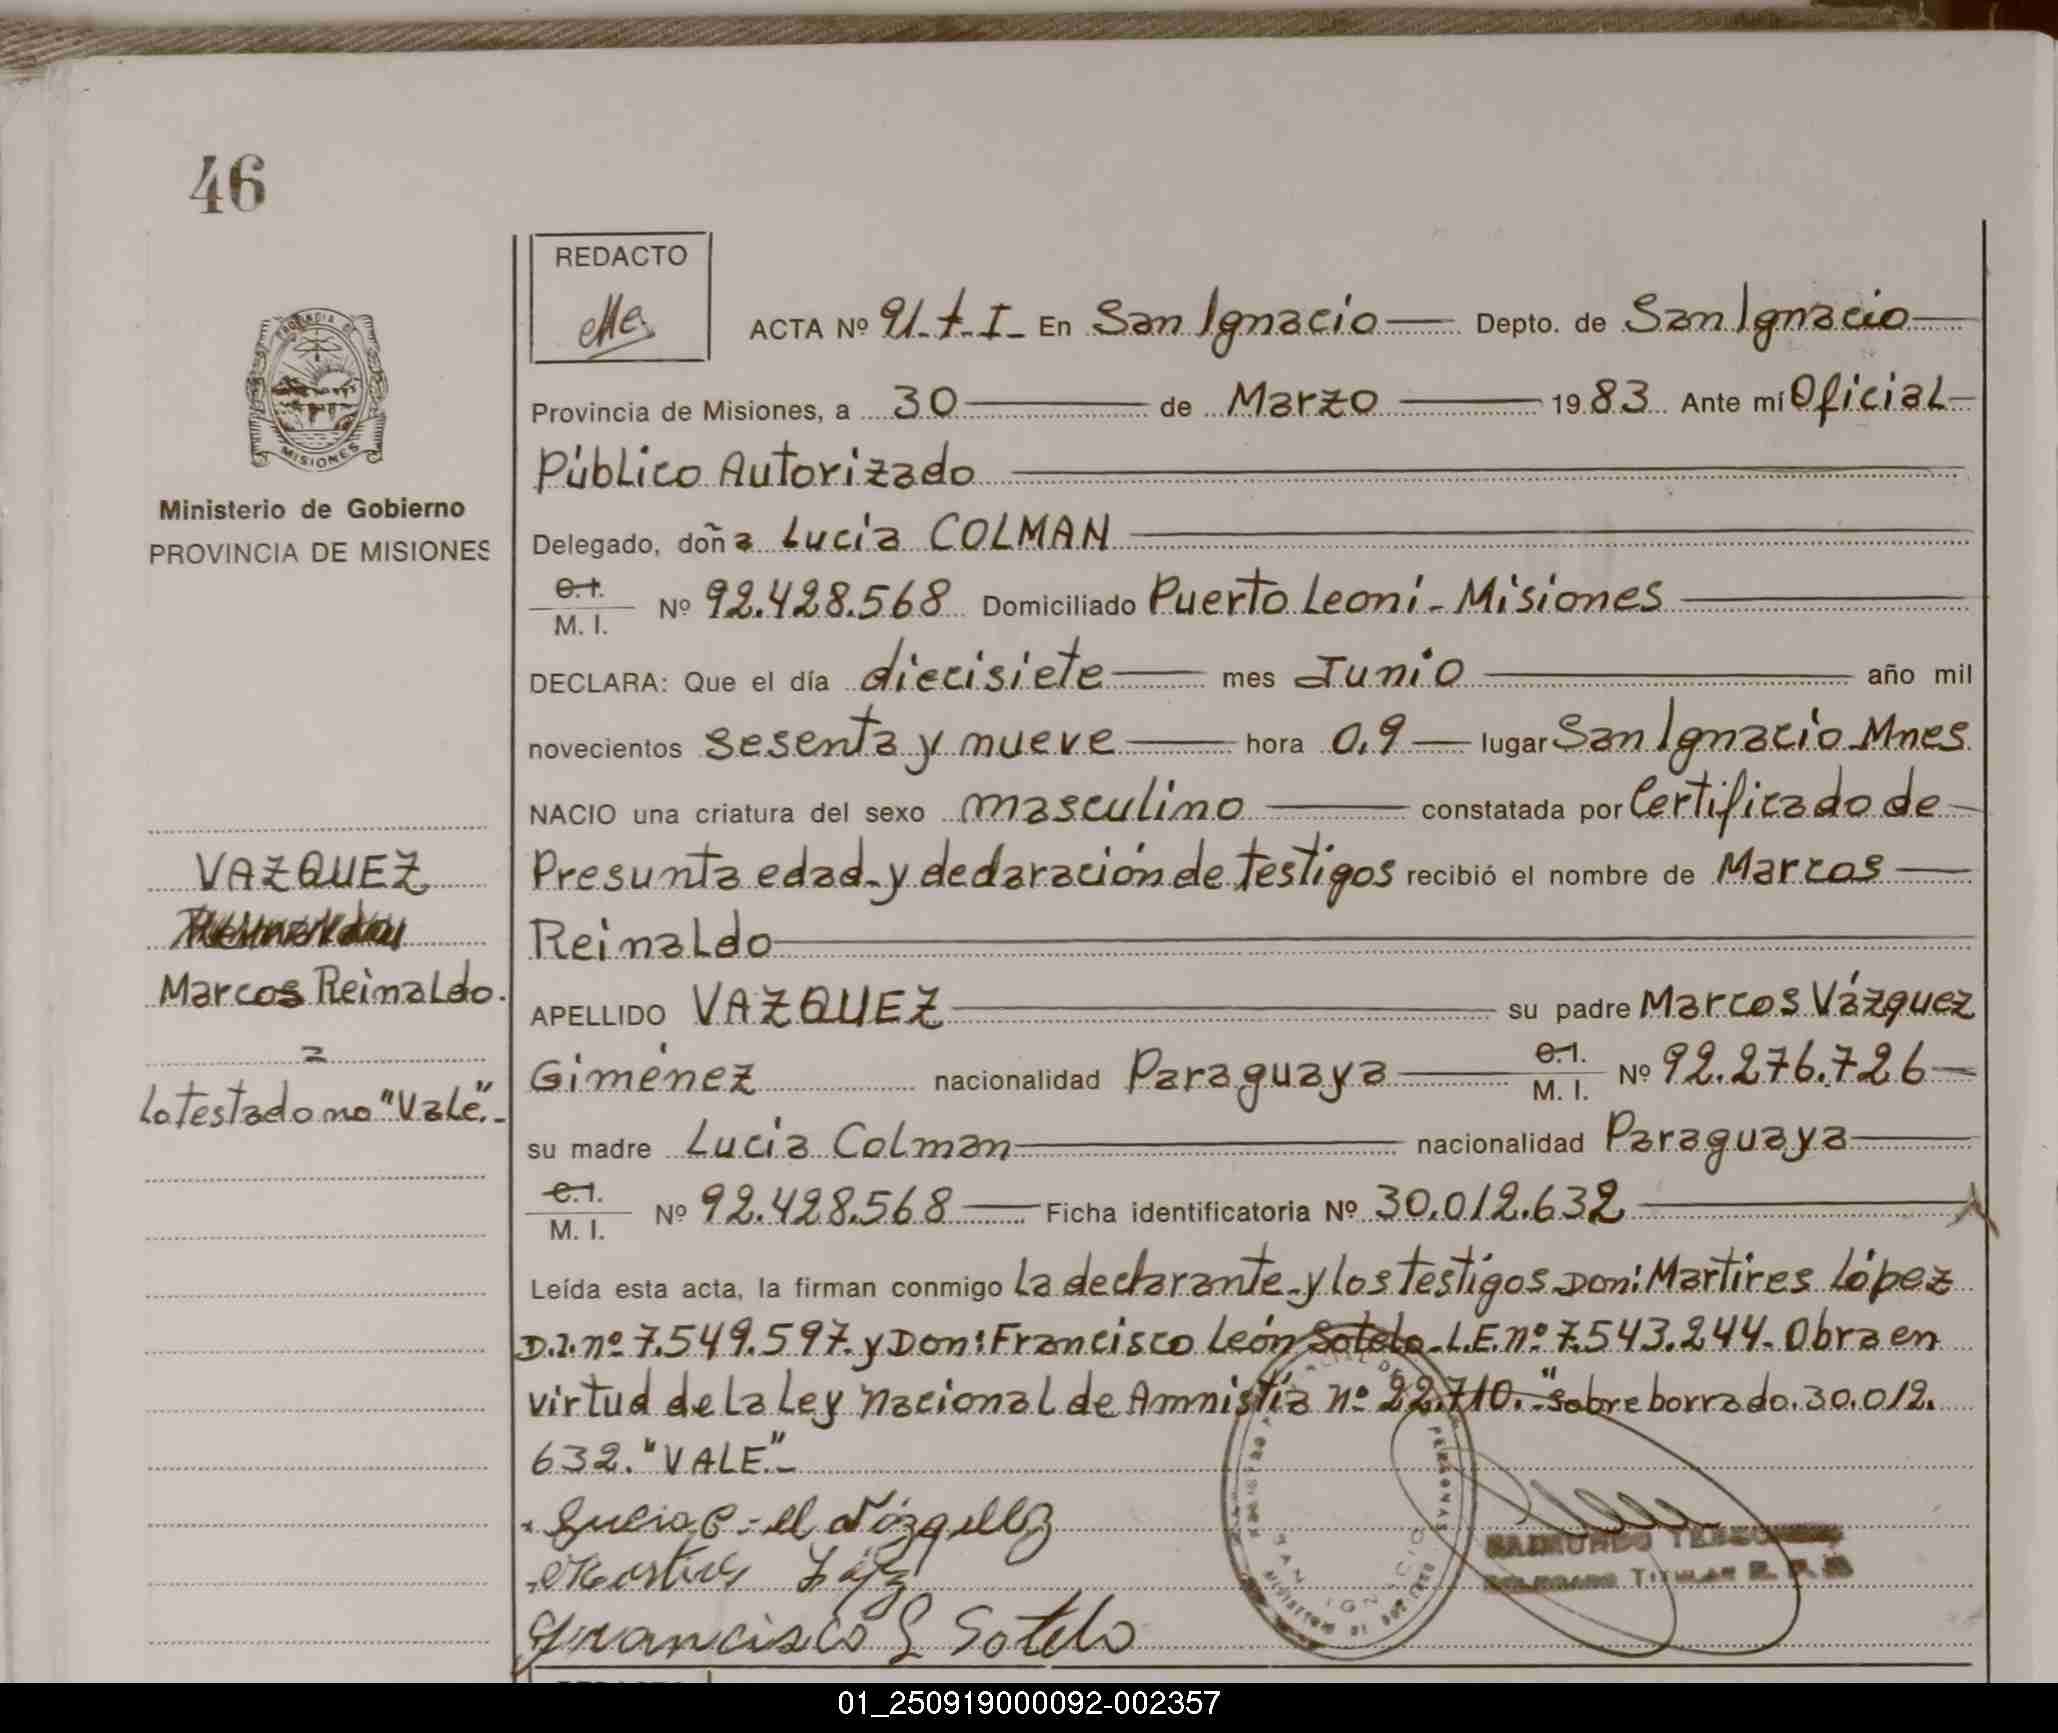 46
REDACTO
ACTA Nº 91-t-I- En San Ignacio Depto. de San Ignacio
Provincia de Misiones, a 30 de Marzo 1983 Ante mí Oficial
Público Autorizado
Delegado, doña Lucia COLMAN
C.I.
M. I. Nº 92.428.568 Domiciliado Puerto Leoni - Misiones
DECLARA: Que el día diecisiete mes Junio año mil
novecientos sesenta y nueve hora 0,9 lugar San Ignacio Mnes
NACIO una criatura del sexo masculino constatada por Certificado de
Presunta edad-y declaración de testigos recibió el nombre de Marcos
Reinaldo
APELLIDO VAZQUEZ su padre Marcos Vázquez
Giménez nacionalidad Paraguaya C.I. M. I. Nº 92.276.726
su madre Lucia Colman nacionalidad Paraguaya
C.I.
M. I. Nº 92.428.568 Ficha identificatoria Nº 30.012.632
Leída esta acta, la firman conmigo La declarante-y los testigos Don: Martires López
D.I. nº 7.549.597. y Don: Francisco León Sotelo-L.E. nº 7.543.244- Obra en
virtud de la Ley Nacional de Amnistía nº 22.710.-"sobre borrado. 30.012.
632. "VALE".-
Francisco L Sotelo
PROVINCIA DE
MISIONES
Ministerio de Gobierno
PROVINCIA DE MISIONES
VAZQUEZ
Marcos Reinaldo.
Lo testado no "Vale".-
SAN IGNACIO
RAIMUNDO
TITULAR
01_250919000092-002357